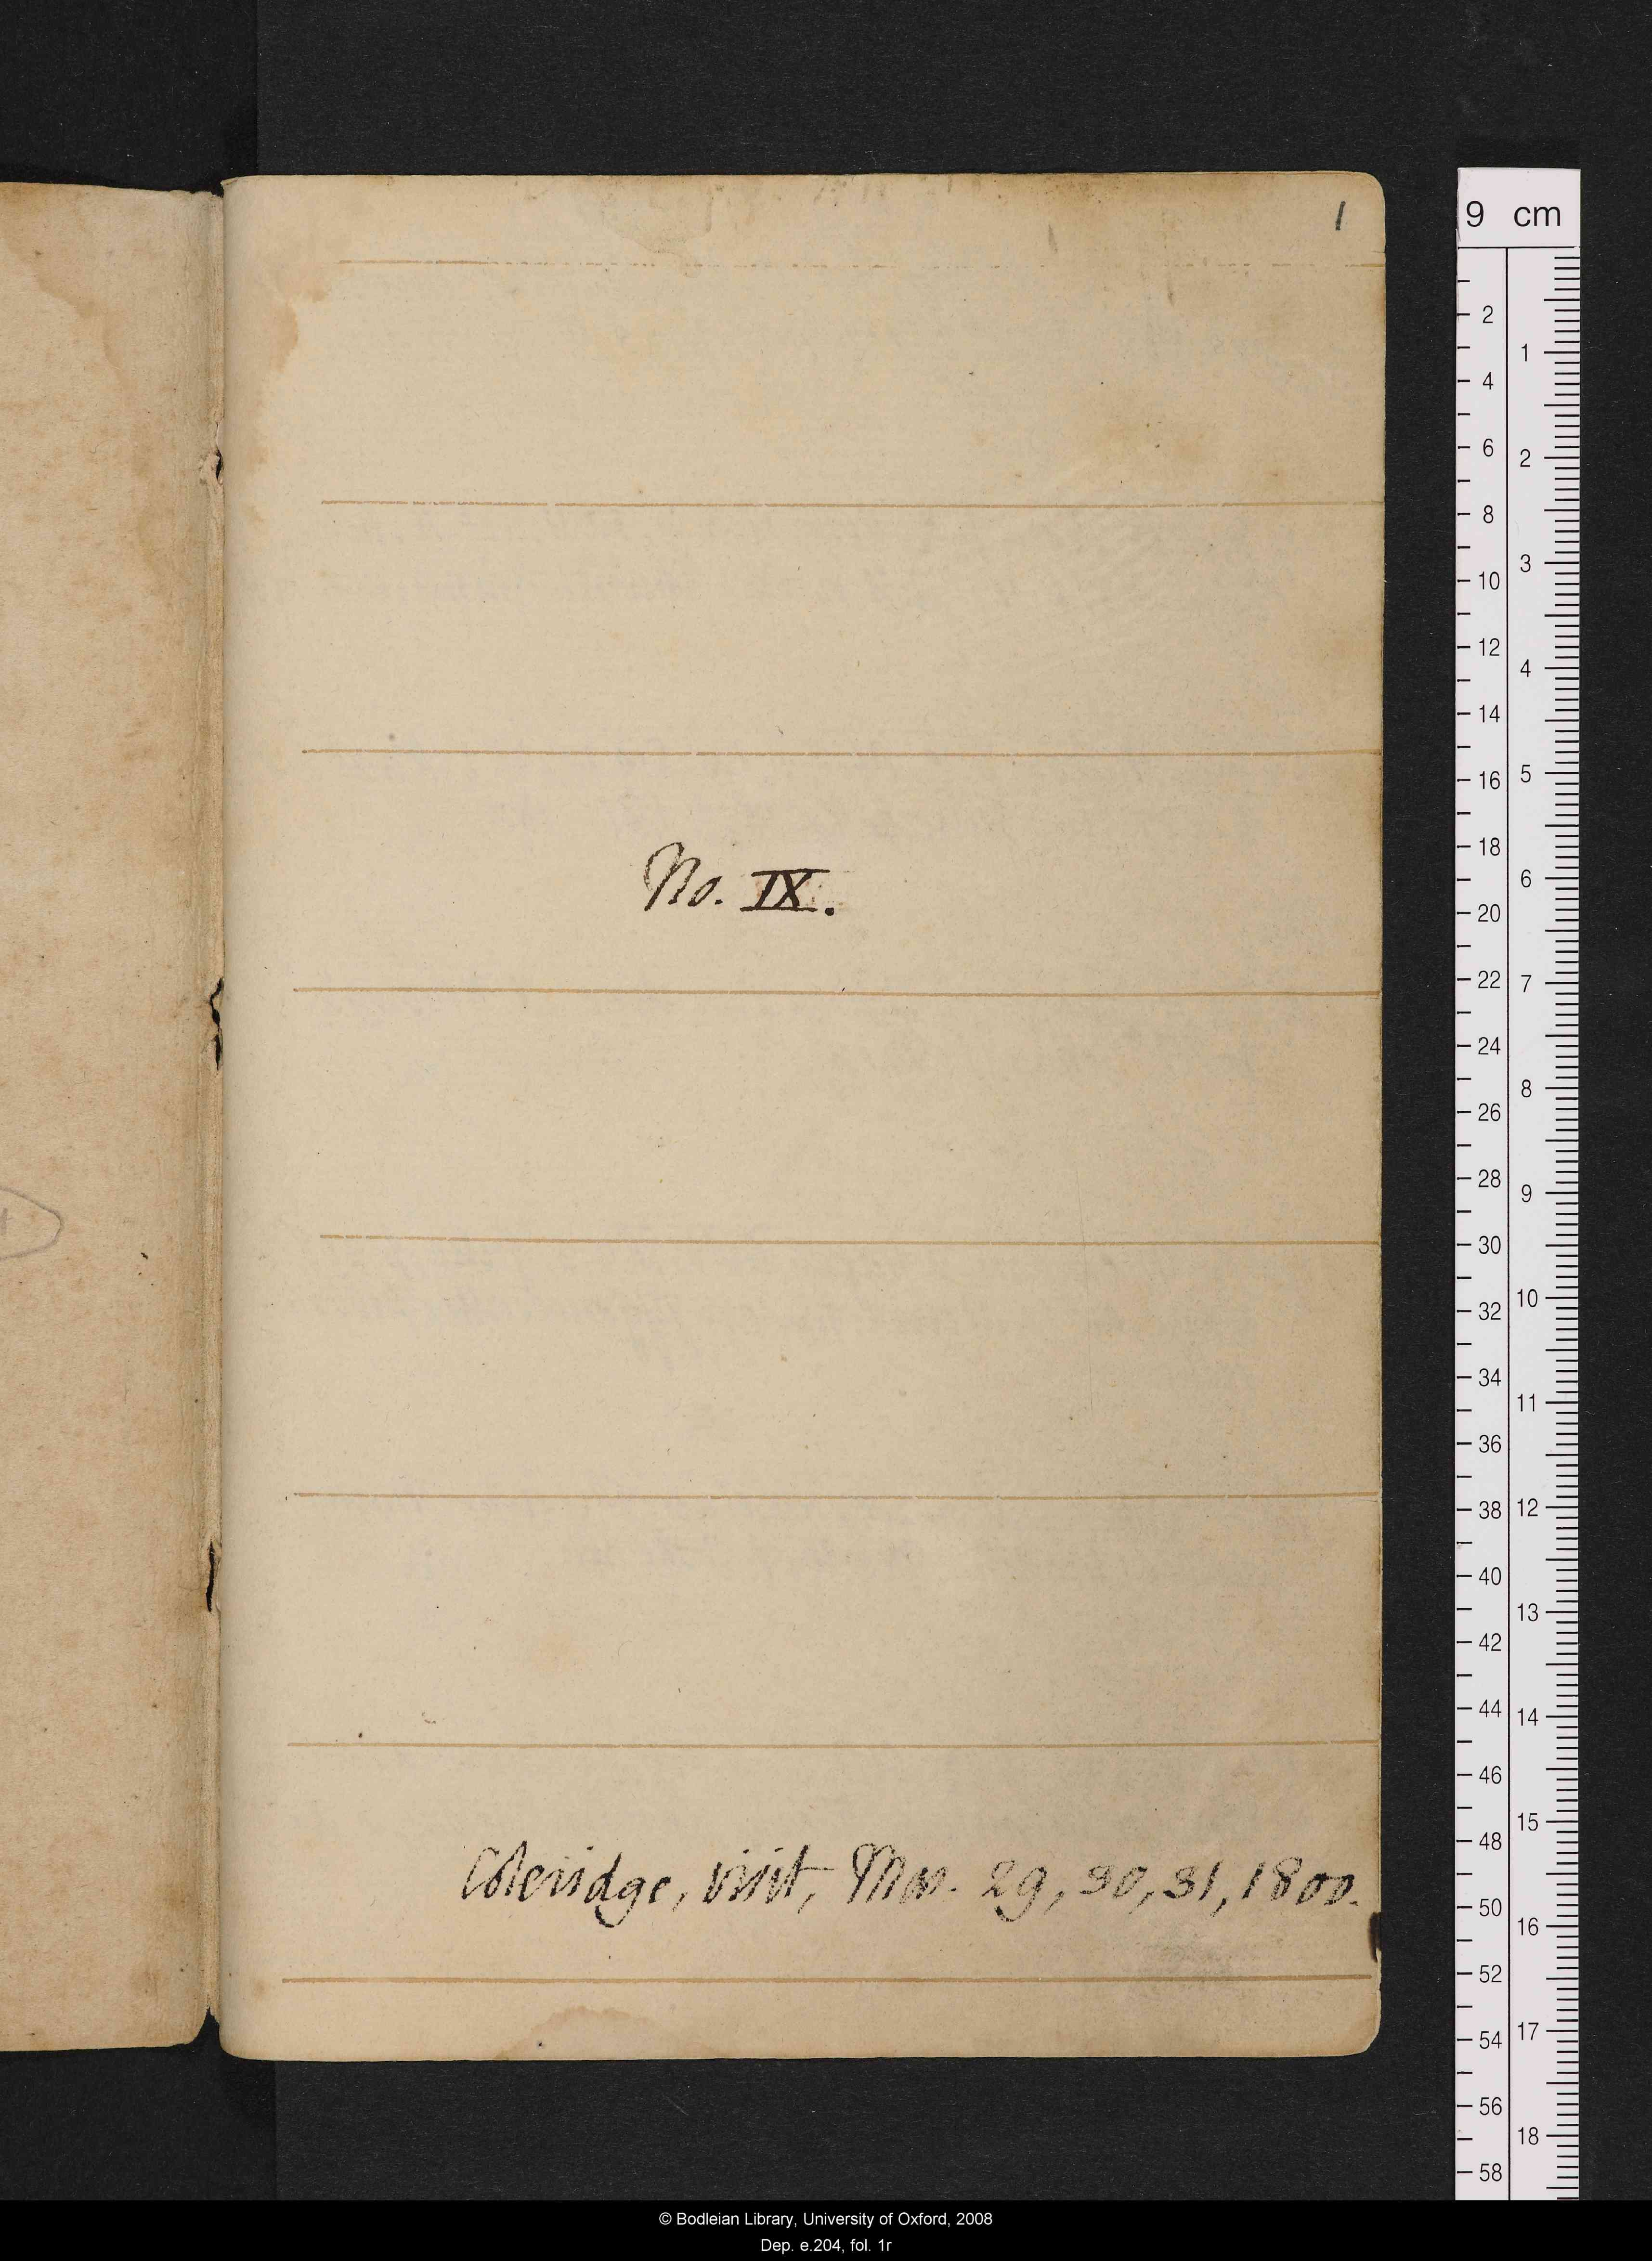 1
No. IX.
Coleridge, visit, Mar. 29, 30, 31, 1800.
9 cm
2
4
6
8
10
12
14
16
18
20
22
24
26
28
30
32
34
36
38
40
42
44
46
48
50
52
54
56
58
1
2
3
4
5
6
7
8
9
10
11
12
13
14
15
16
17
18
© Bodleian Library, University of Oxford, 2008
Dep. e.204, fol. 1r